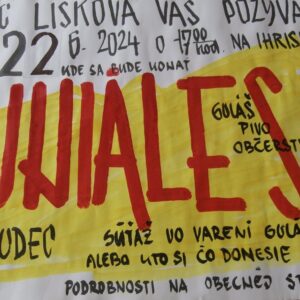 LISKOVA VAS POZÝVA
22 6. 2024 O 17 00 hod. NA IHRIS
KDE SA BUDE KONAŤ
UNIÁLES
GULÁŠ
PIVO
OBČERST
UDEC
SÚŤAŽ VO VARENÍ GULÁ
ALEBO KTO SI ČO DONESIE
PODROBNOSTI NA OBECNEJ S